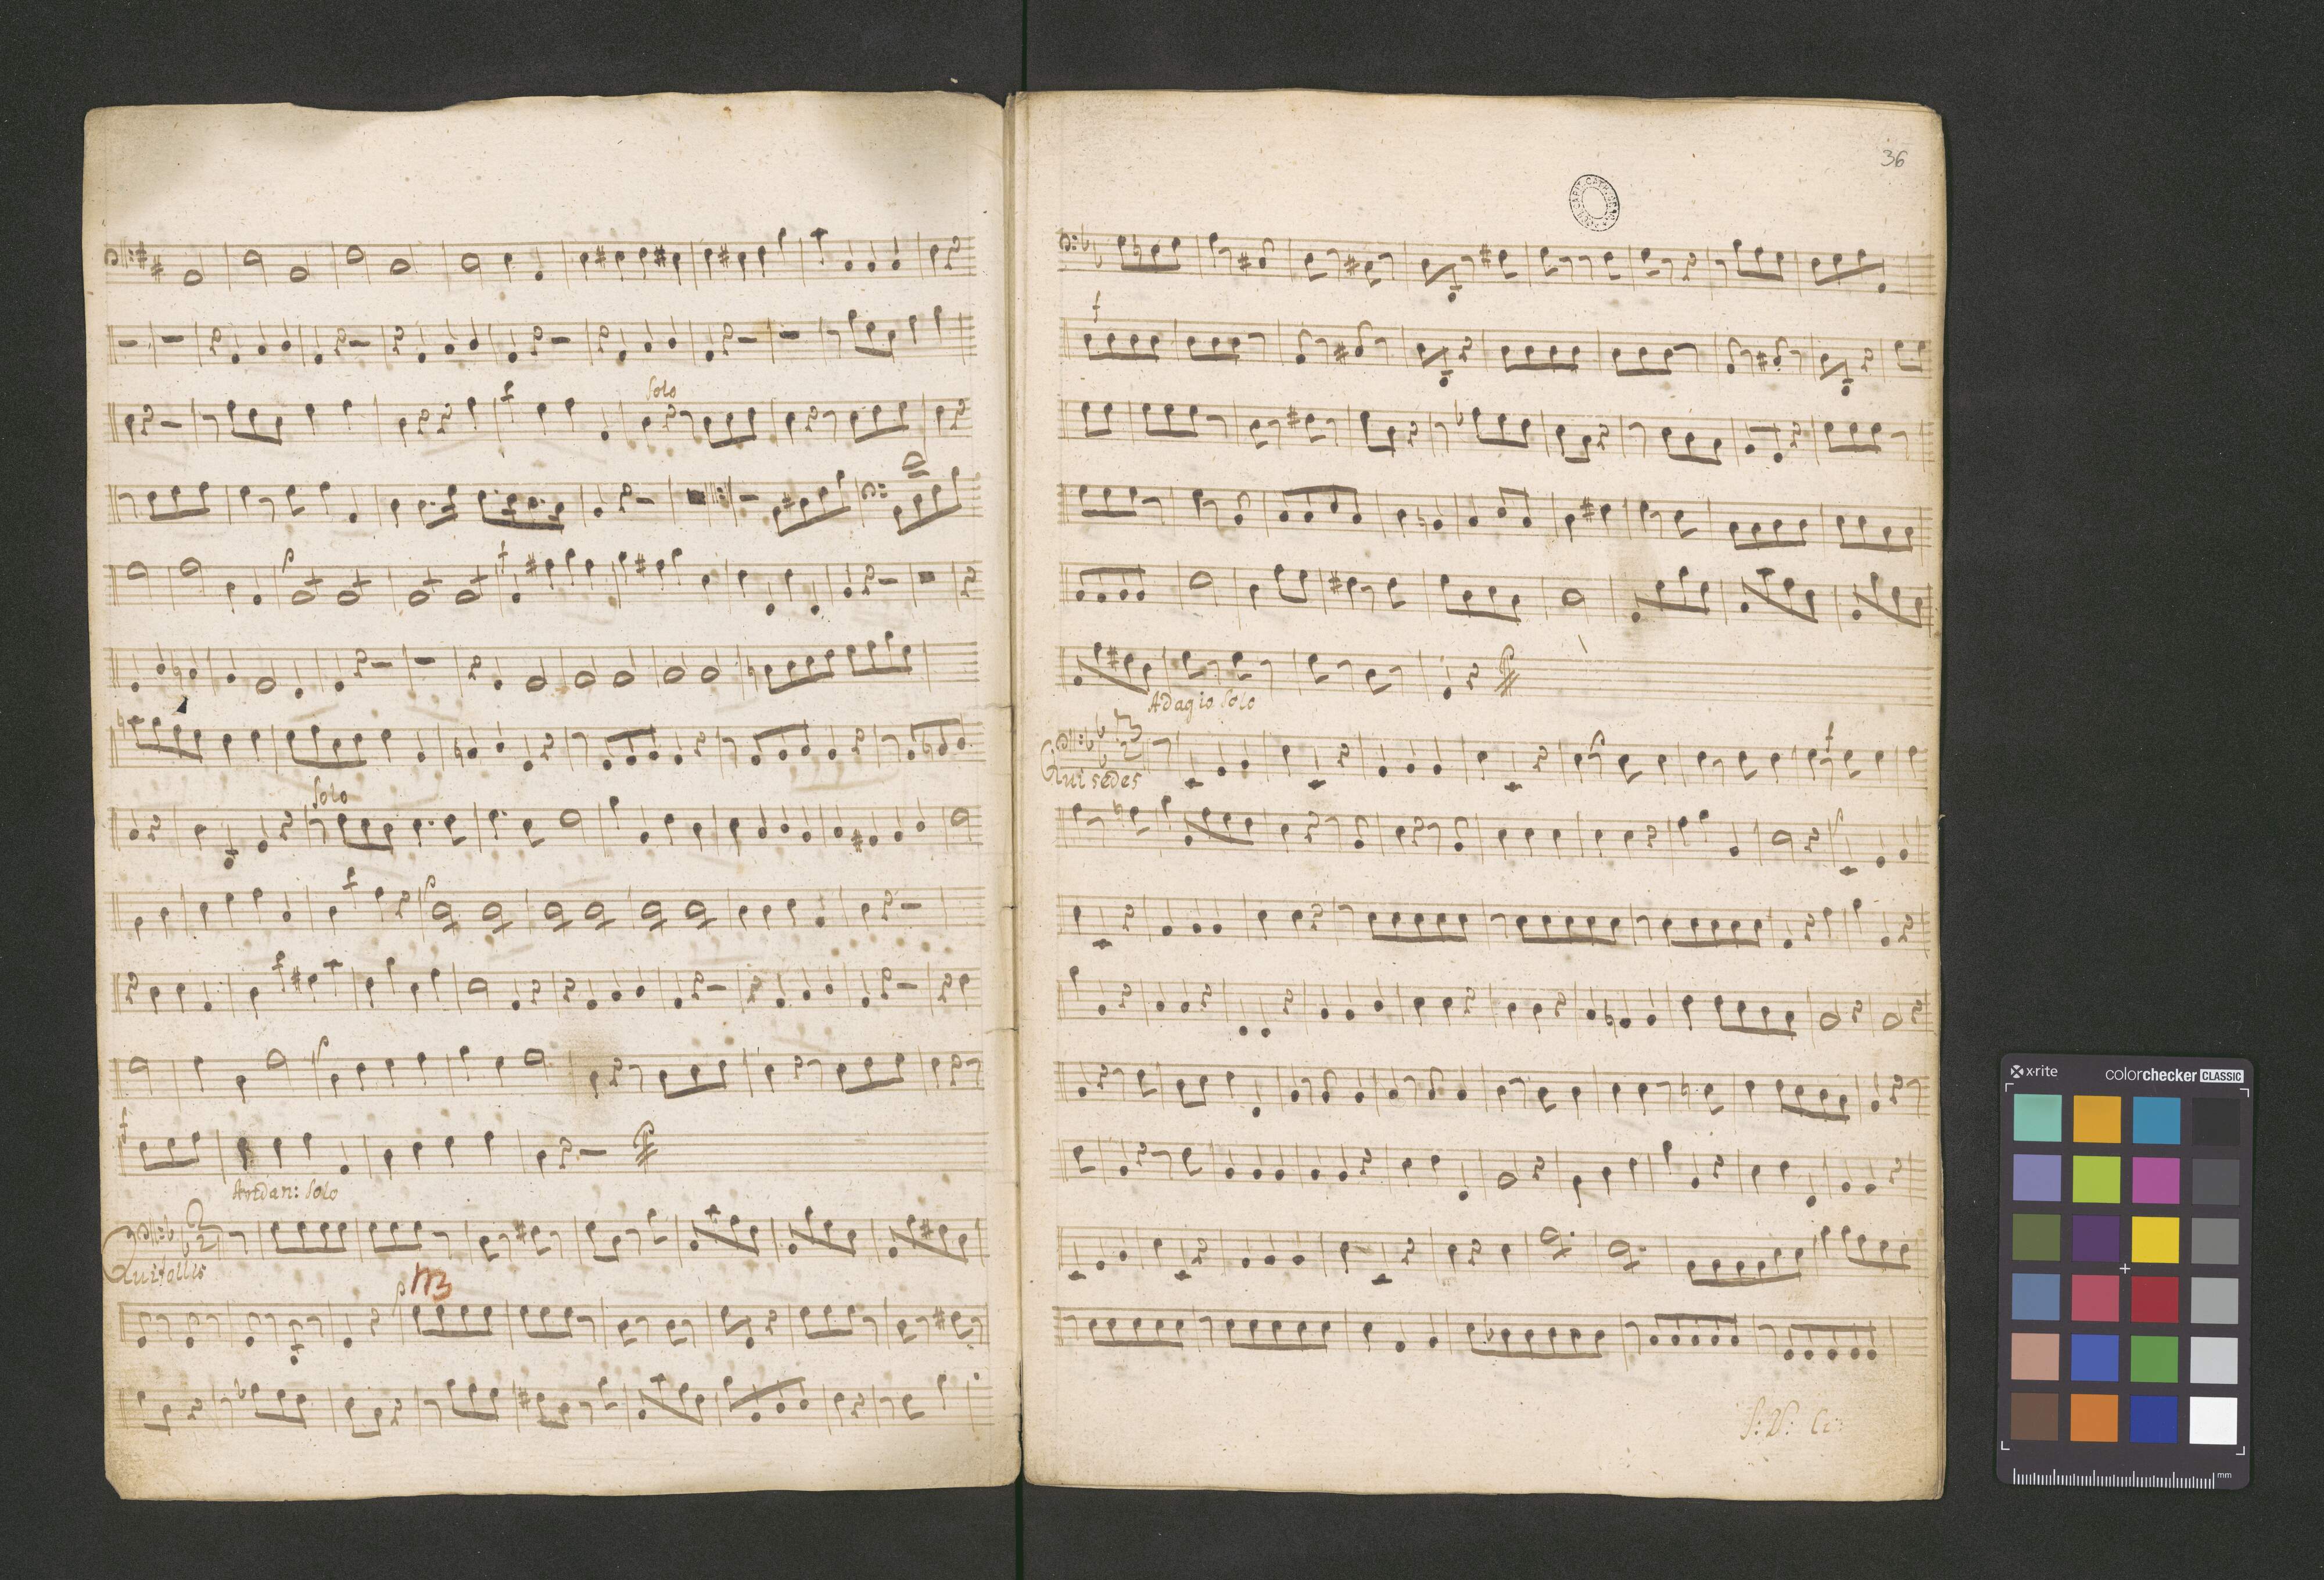 Solo
Solo
Andan: Solo
Qui tollis
36
Adagio Solo
Qui sedes
x-rite
colorchecker CLASSIC
mm